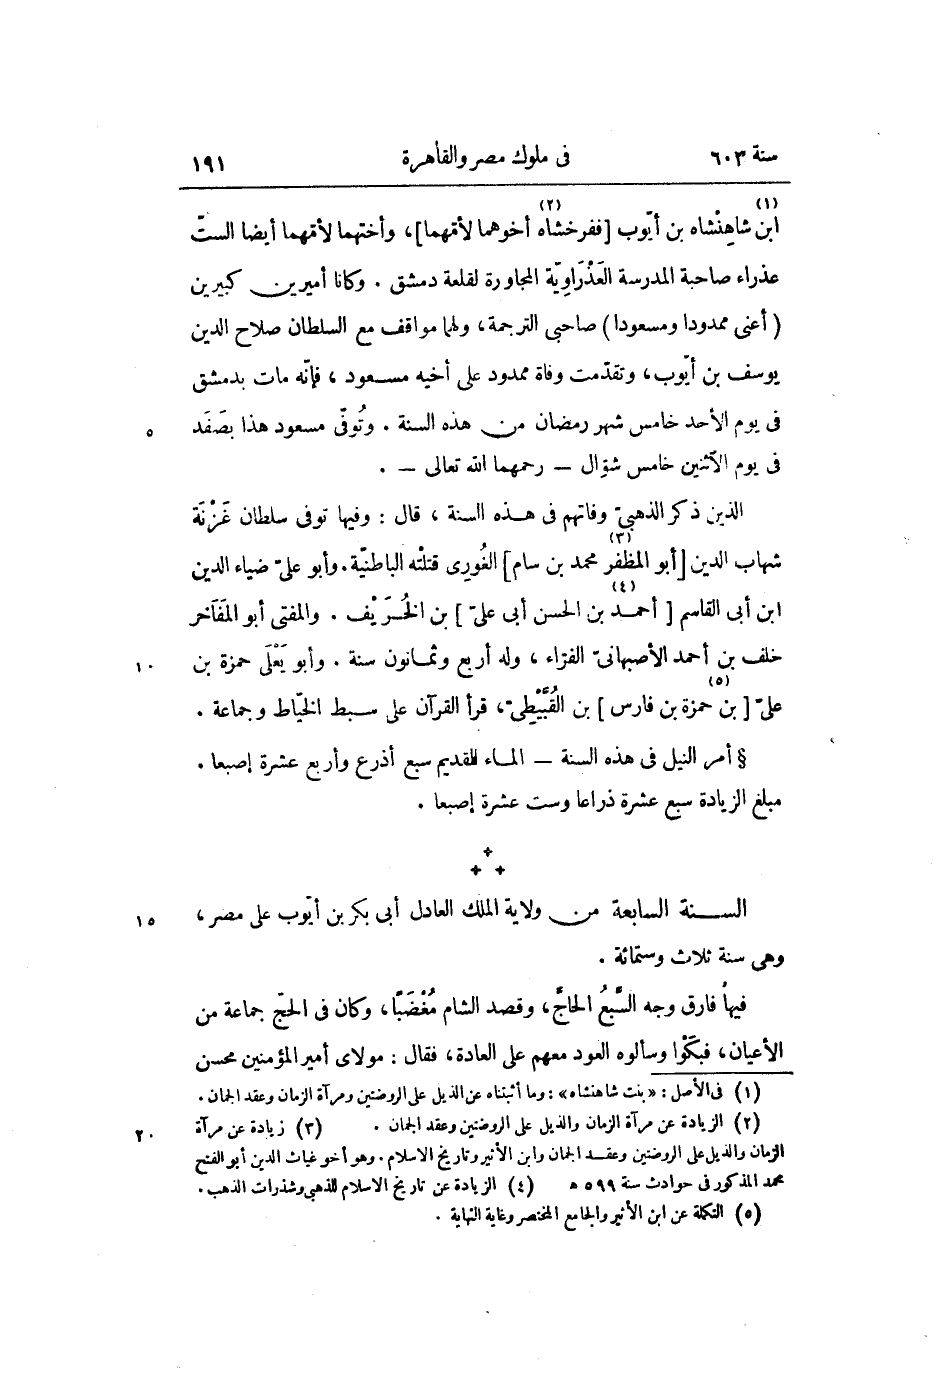 سنة ٦٠٣ فى ملوك مصر والقاهرة ١٩١
(١) (٢)
ابن شاهِنْشاه بن أيّوب [ففرخشاه أخوهما لأمّهما]، وأختهما لأمّهما أيضا الستّ
عذراء صاحبة المدرسة العَذْرَاوِيّة المجاورة لقلعة دمشق . وكانا أميرين كبيرين
(أعنى ممدودا ومسعودا) صاحبى الترجمة، ولهما مواقف مع السلطان صلاح الدين
يوسف بن أيّوب، وتقدّمت وفاة ممدود على أخيه مسعود ، فإنّه مات بدمشق
فى يوم الأحد خامس شهر رمضان من هذه السنة . وتُوفّى مسعود هذا بصَفَد ٥
فى يوم الآثنين خامس شوّال — رحمهما الله تعالى — .
الذين ذكر الذهبىّ وفاتهم فى هذه السنة ، قال : وفيها توفى سلطان غَزْنَة
(٣)
شهاب الدين [أبو المظفر محمد بن سام] الغُورى قتلتْه الباطنيّة. وأبو علىّ ضياء الدين
(٤)
ابن أبى القاسم [ أحمد بن الحسن أبى علىّ ] بن الخُرَيْف . والمفتى أبو المَفَاخر
خلف بن أحمد الأصبهانىّ الفرّاء ، وله أربع وثمانون سنة . وأبو يَعْلَى حمزة بن ١٠
(٥)
علىّ [ بن حمزة بن فارس ] بن القُبَّيْطِىّ، قرأ القرآن على سبط الخيّاط وجماعة .
§ أمر النيل فى هذه السنة — الماء القديم سبع أذرع وأربع عشرة إصبعا .
مبلغ الزيادة سبع عشرة ذراعا وست عشرة إصبعا .
السنة السابعة من ولاية الملك العادل أبى بكر بن أيّوب على مصر ، ١٥
وهى سنة ثلاث وستمائة .
فيها فارق وجه السَّبُعُ الحاجَّ، وقصد الشام مُغْضَبًا، وكان فى الحجّ جماعة من
الأعيان، فبكَوْا وسألوه العود معهم على العادة، فقال : مولاى أمير المؤمنين محسن
(١) فى الأصل : «بنت شاهنشاه» : وما أثبتناه عن الذيل على الروضتين ومرآة الزمان وعقد الجمان .
(٢) الزيادة عن مرآة الزمان والذيل على الروضتين وعقد الجمان . (٣) زيادة عن مرآة ٢٠
الزمان والذيل على الروضتين وعقد الجمان وابن الأثير وتاريخ الاسلام . وهو أخو غياث الدين أبو الفتح
محمد المذكور فى حوادث سنة ٥٩٩ هـ (٤) الزيادة عن تاريخ الاسلام للذهبى وشذرات الذهب .
(٥) التكملة عن ابن الأثير والجامع المختصر وغاية النهاية .